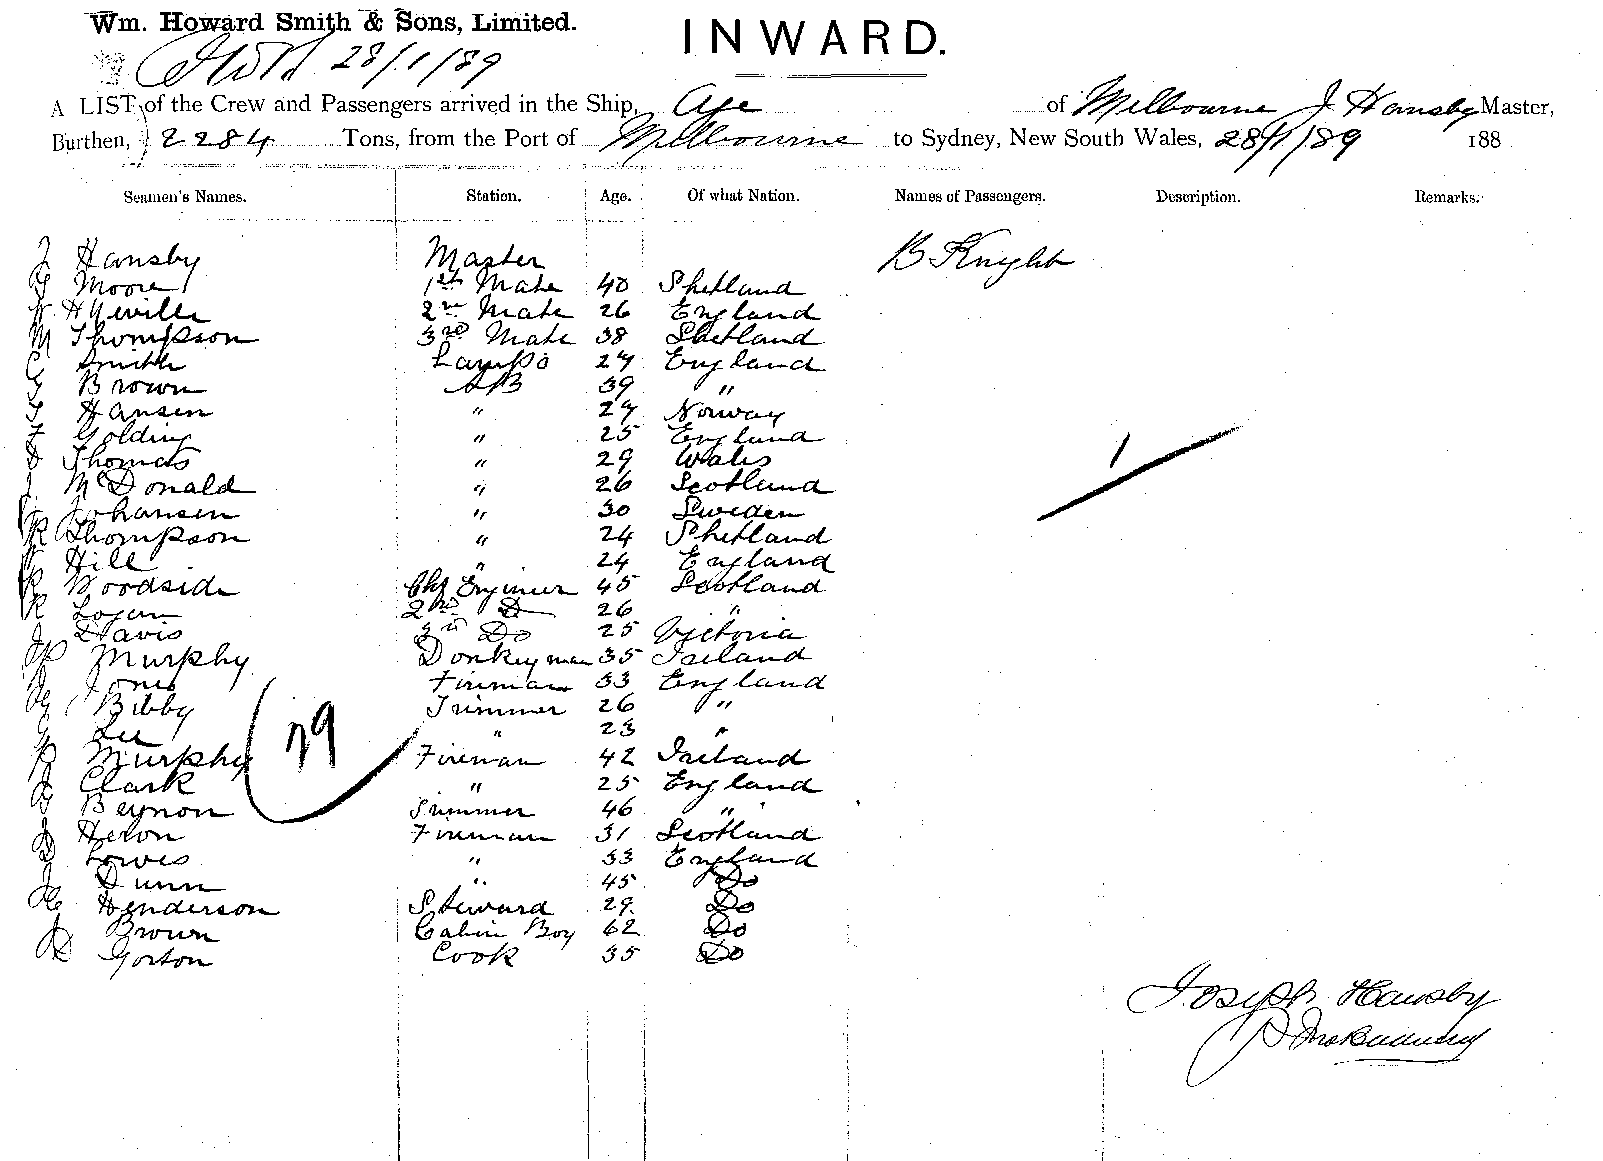 Wm. Howard Smith & Sons, Limited.
INWARD.
28/1/89
A LIST of the Crew and Passengers arrived in the Ship, Age of Melbourne J Hansby Master,
Burthen, 2284 Tons, from the Port of Melbourne to Sydney, New South Wales, 28/1/89 188
Seamen's Names. Station. Age. Of what Nation. Names of Passengers. Description. Remarks.
J Hansby Master B Knight
G Moore 1st Mate 40 Shetland
H Neville 2nd Mate 26 England
M Thompson 3rd Mate 38 Shetland
C Smith Lamps 24 England
G Brown AB 39 "
T Hansen " 27 Norway
F Golding " 25 England
D Thomas " 29 Wales
J McDonald " 26 Scotland
Johansen " 30 Sweden
R Thompson " 24 Shetland
Hill " 24 England
R Woodside Chf Engineer 45 Scotland
R Logan 2nd Do 26 "
Davis 3rd Do 25 Victoria
Murphy Donkeyman 35 Ireland
Jones Fireman 33 England
Bibby Trimmer 26 "
Lee " 23 "
Murphy Fireman 42 Ireland
Clark " 25 England
Beynon Trimmer 46 "
Heron Fireman 31 Scotland
Lowes " 33 England
Dunn " 45 Do
Henderson Steward 29 Do
Brown Cabin Boy 62 Do
D Gorton Cook 35 Do
29
1
Joseph Hansby